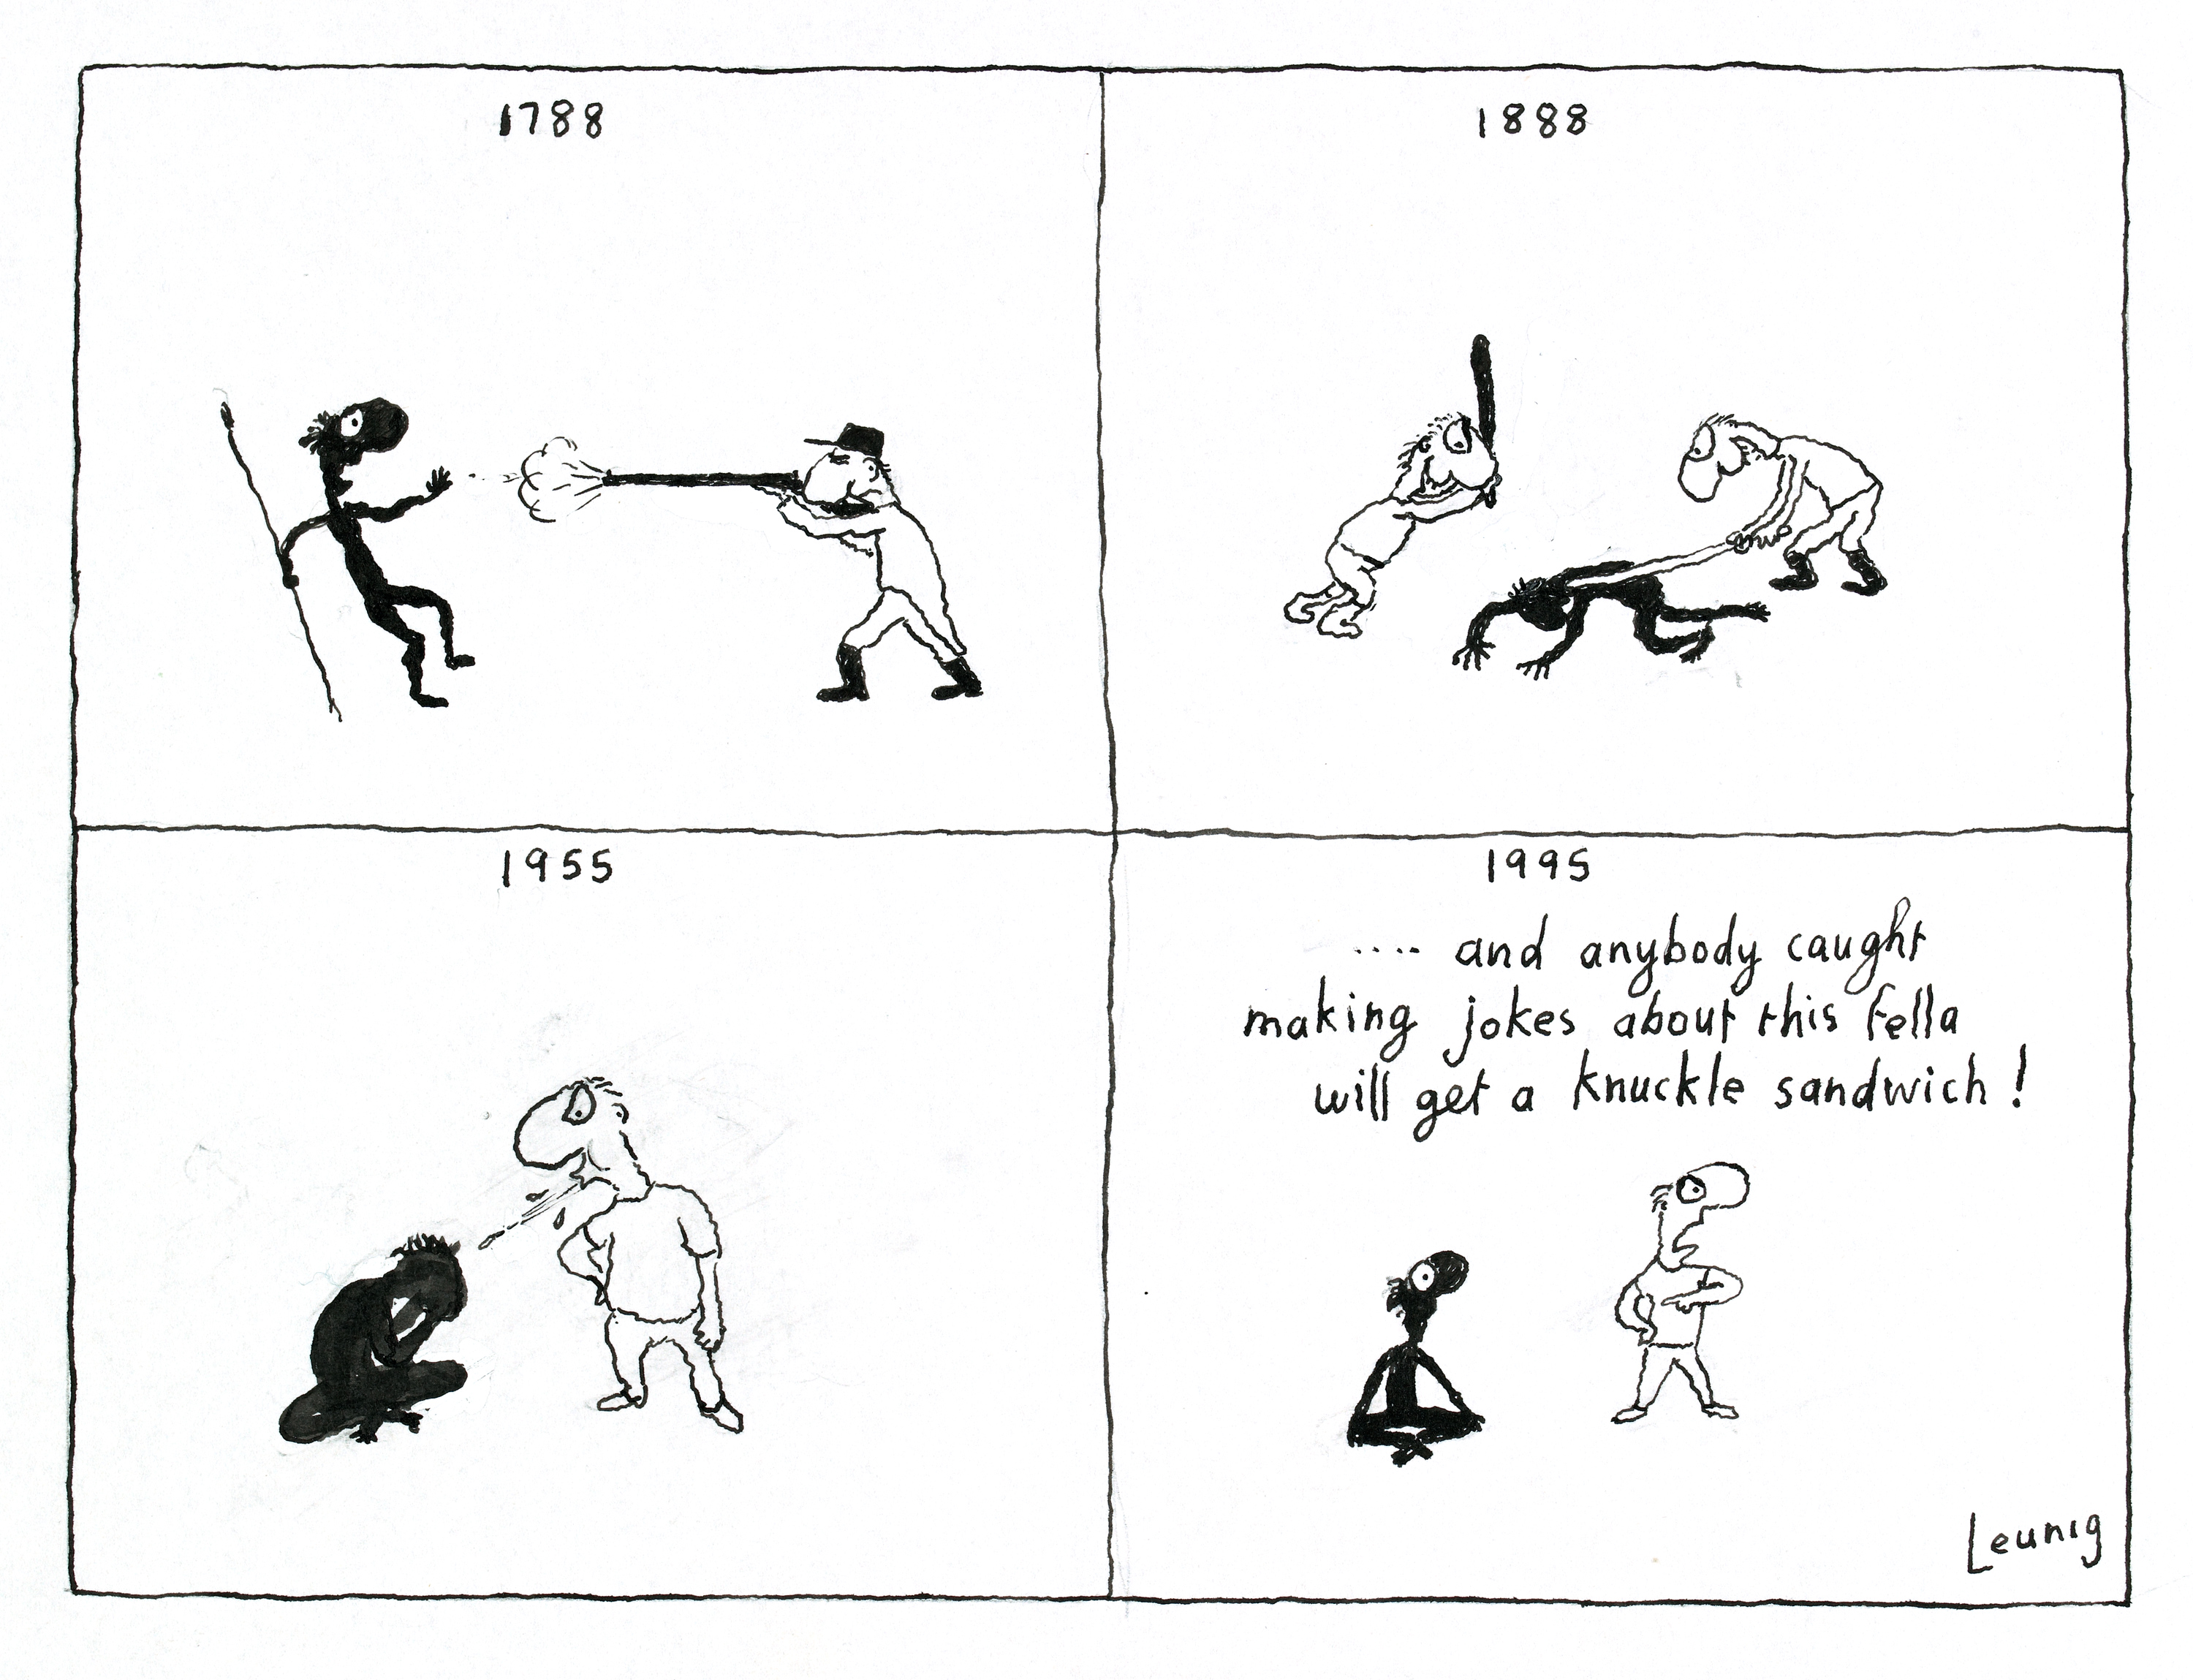 1788
1888
1955
1995
.... and anybody caught
making jokes about this fella
will get a knuckle sandwich!
Leunig